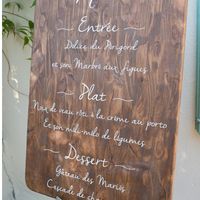 Entrée
Délice du Périgord
et son Marbré aux figues
Plat
Noix de veau rôti à la crème au porto
Et son mili-mélo de légumes
Dessert
Gâteau des Mariés
Cascade de